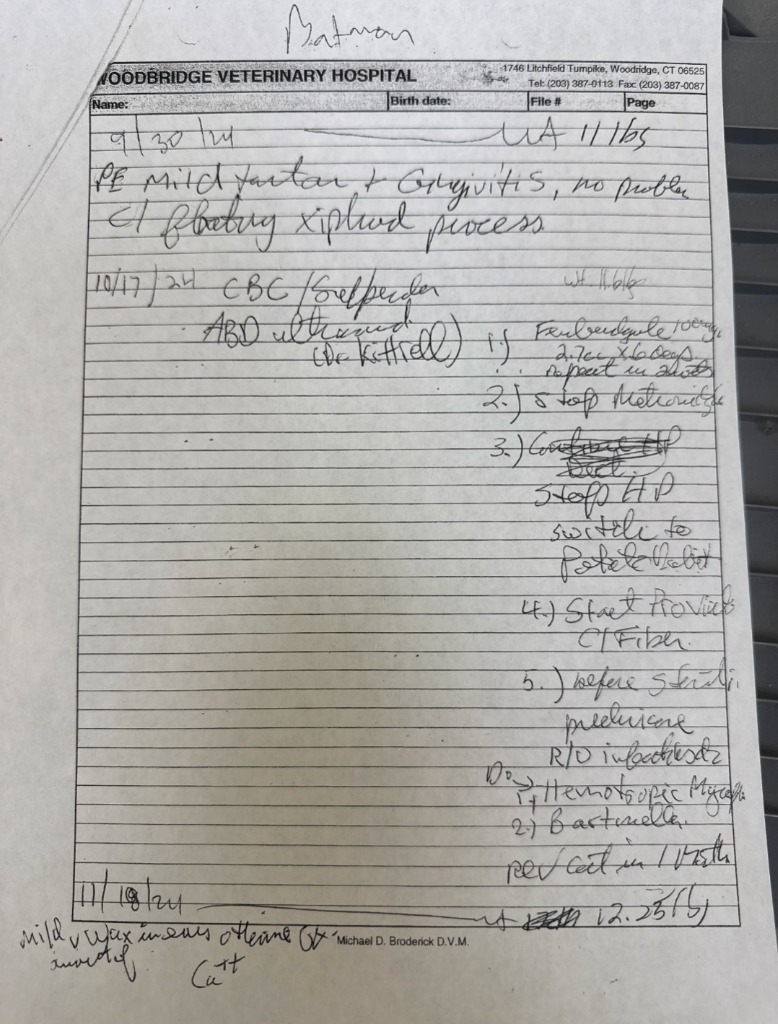 Batman
WOODBRIDGE VETERINARY HOSPITAL
1746 Litchfield Turnpike, Woodridge, CT 06525
Tel: (203) 387-0113 Fax: (203) 387-0087
Name: Birth date: File # Page
9/30/24 11 lbs
PE Mild tartar + Gingivitis, no problem
c/ floating xiphoid process
10/17/24 CBC/Superchem wt. 11.6 lb
ABD ultrasound
(Dr. Kittrell)
1.) Fenbendazole 100mg/
2.7cc x 6 days
repeat in 2 wks
2.) Stop Metronidazole
3.)
Stop HP
switch to
Potato Rabbit
4.) Start Proviable
c/ Fiber.
5.) before
R/O
Do →
1) Hemotropic
2.) Bartonella.
in 1 month
11/18/24 12.25 lb
Mild wax in ears
Ca++
Michael D. Broderick D.V.M.